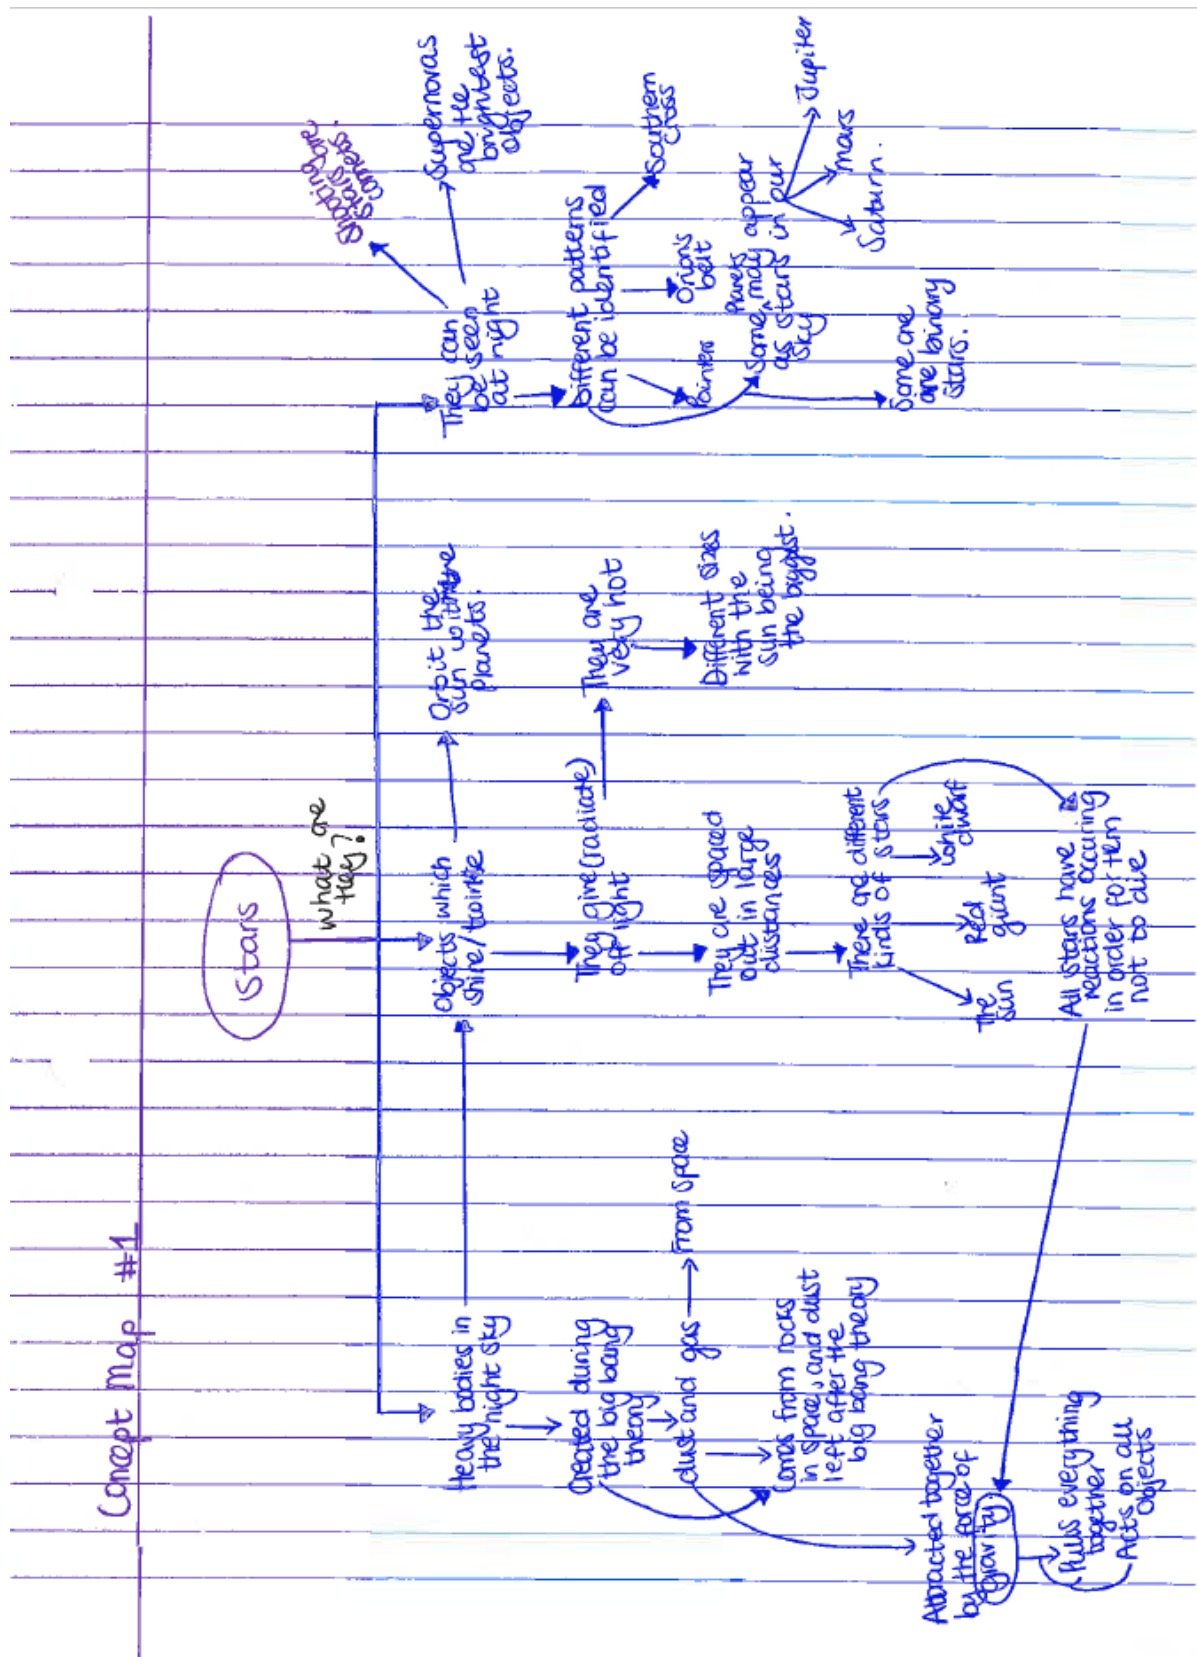 Concept Map #1
Stars
What are
they?
Heavy bodies in
the night sky
Created during
the big bang
theory
dust and gas
From space
Comes from rocks
in space, and dust
left after the
big bang theory
Attracted together
by the force of
gravity
Pulls everything
together
Acts on all
Objects
Objects which
shine/twinkle
They give (radiate)
off light
They are spaced
out in large
distances
There are different
kinds of stars
The
sun
Red
giant
white
dwarf
All stars have
reactions occuring
in order for tem
not to die
Orbit the
sun with the
planets.
They are
very hot
Different sizes
with the
sun being
the biggest.
They can
be seen
at night
Shooting are
stars
comets.
Supernovas
are the
brightest
Objects.
Different patterns
can be identified
Pointers
Orion's
belt
Southern
Cross
Some planets may appear
as stars in our
sky
Saturn.
mars
Jupiter
Some are
are binary
stars.